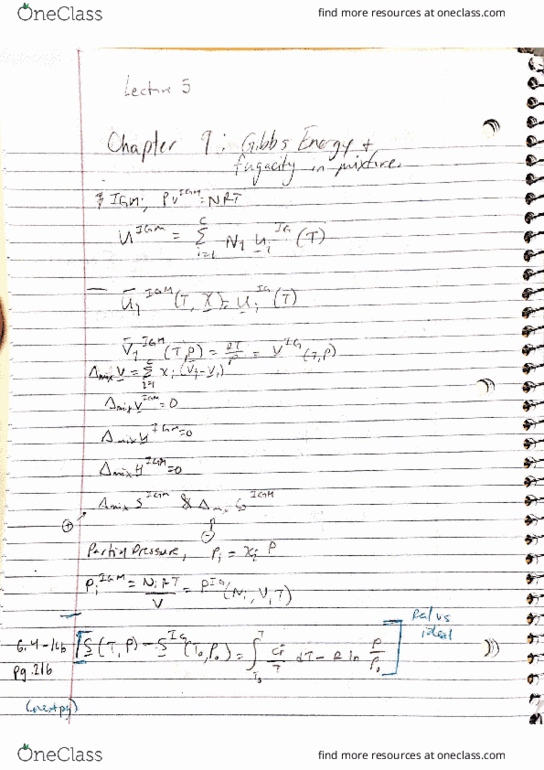 OneClass find more resources at oneclass.com
Lecture 5
Chapter 9: Gibbs Energy +
fugacity in mixture.
IGM; PV^IGM = NRT
U^IGM = Σ_{i=1}^{C} N_i U_i^IG (T)
Ū_i^IGM (T, X) = U_i^IG (T)
V̄_i^IGM (T, P) = RT/P = V^IG (T, P)
Δmix V = Σ_{i=1}^{C} x_i (V̄_i - V_i)
Δmix V^IGM = 0
Δmix U^IGM = 0
Δmix H^IGM = 0
Δmix S^IGM & Δmix G^IGM
⊕ ⊖
Partial Pressure, P_i = x_i P
P_i^IGM = N_i RT / V = P^IG (N_i, V, T)
real vs
ideal
6.4-16b S(T, P) - S^IG (T_0, P_0) = ∫_{T_0}^{T} C_P^*/T dT - R ln P/P_0
pg. 216
(next pg)
OneClass find more resources at oneclass.com